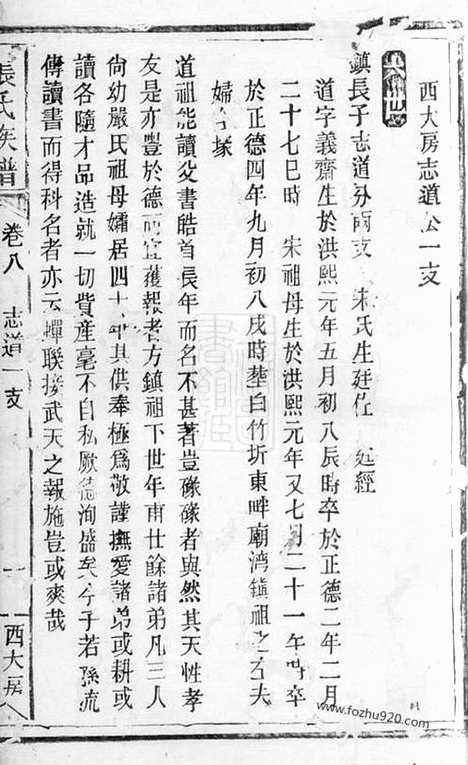 西大房志道公一支
六世
鎮長子志道分兩支 宋氏生廷佐 廷經
道字義齋生於洪熙元年五月初八辰時卒於正德二年二月
二十七巳時 宋祖母生於洪熙元年又七月二十一午時卒
於正德四年九月初八戌時塟白竹圻東畔廟湾鎮祖之右夫
婦合塚
道祖能讀父書皓首長年而名不甚著豈碌碌者與然其天性孝
友是亦豐於德而宜獲報者方鎮祖下世年甫廿餘諸弟凡三人
尙幼嚴氏祖母孀居四十年其供奉極爲敬謹撫愛諸弟或耕或
讀各隨才品造就一切貲産毫不自私厥德洵盛矣今子若孫流
傳讀書而得科名者亦云蟬聯接武天之報施豈或爽哉
張氏族譜
卷八 志道一支
一
西大房
www.fozhu920.com